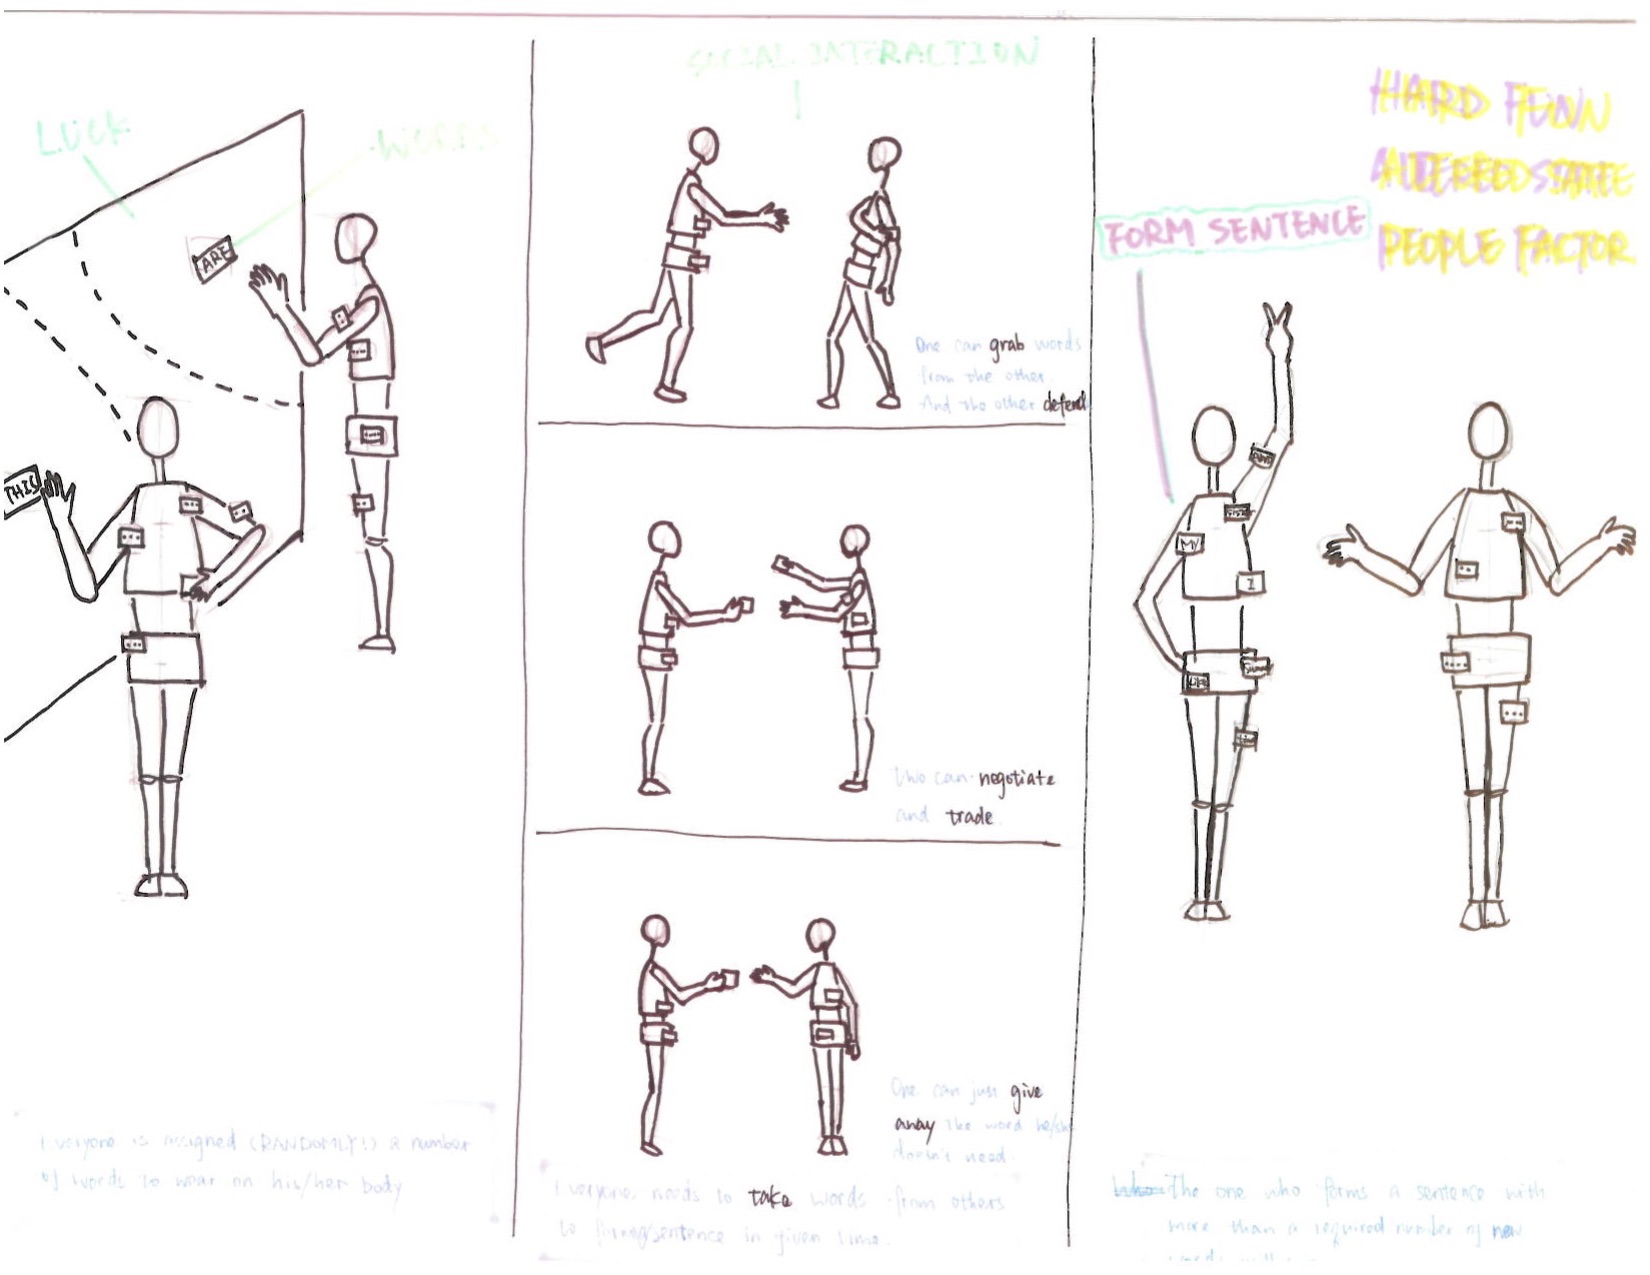 LUCK
WORDS
ARE
THIS
Everyone is assigned (RANDOMLY!) a number
of words to wear on his/her body
SOCIAL INTERACTION
One can grab words
from the other.
And the other defend
two can negotiate
and trade.
One can just give
away the word he/she
doesn't need.
Everyone needs to take words from others
to sentence in given time.
HARD FUN
ALTERED STATE
PEOPLE FACTOR
FORM SENTENCE
MY
I
The one who forms a sentence with
more than a required number of new
words